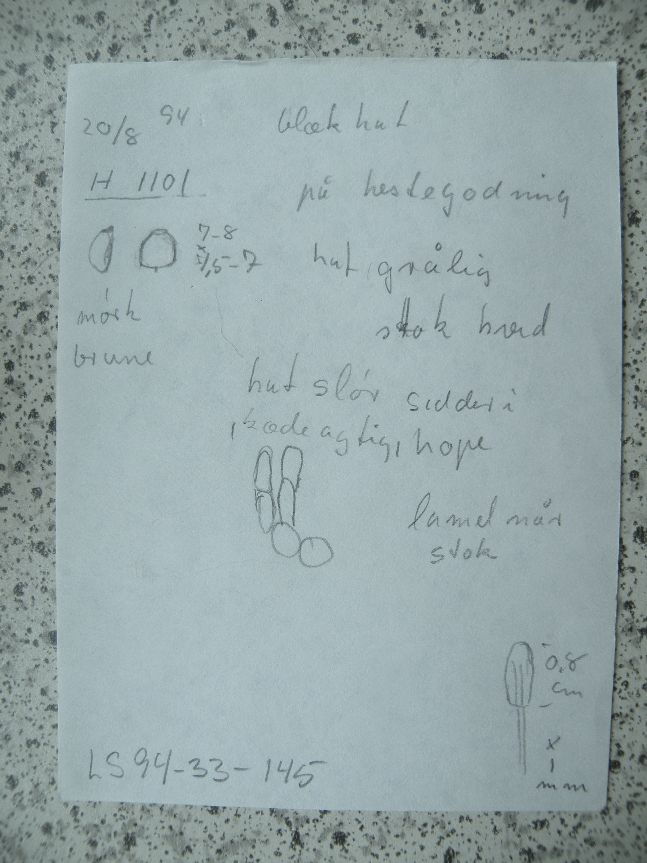 20/8 94 blæk hat
H 1101 på hestegødning
7-8
x
5,5-7 hat grålig
mörk
brune
stok hvid
hat slör sidder i
kædeagtig, hope
lamel når
stok
0,8
cm
x
1
mm
LS94-33-145